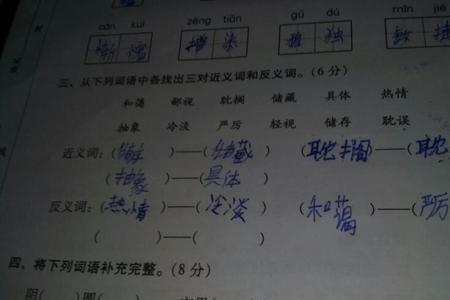 cán kuì zēng tiān gū dú mǐn jié
添 独
三、从下列词语中各找出三对近义词和反义词。(6 分)
和蔼 鄙视 耽搁 储藏 具体 热情
抽象 冷淡 严厉 轻视 储存 耽误
近义词:(储存)——(储藏) (耽搁)——(耽
(抽象)——(具体)
反义词:(热情)——(冷淡) (和蔼)——(严厉
( )——( )
四、将下列词语补充完整。(8 分)
阴( )圆( )